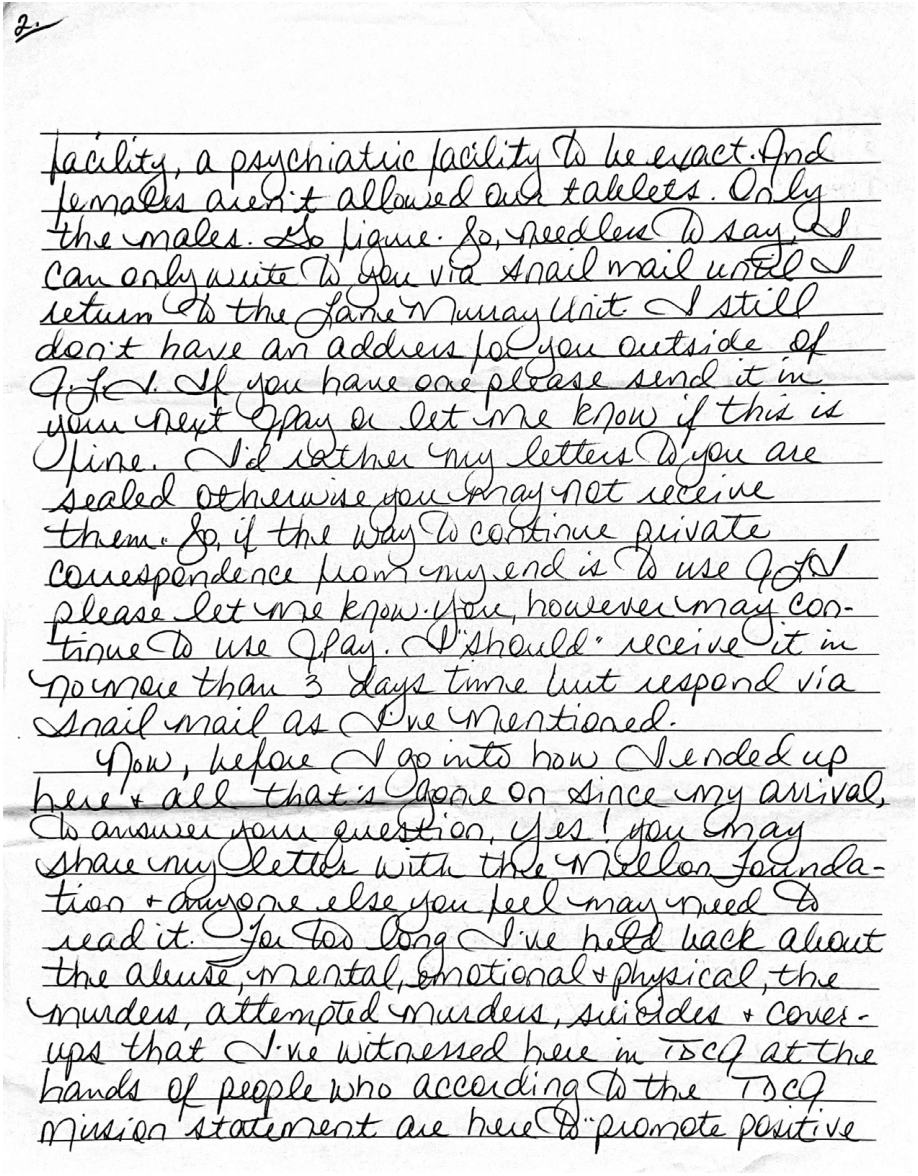 2.
facility, a psychiatric facility to be exact. And
females aren't allowed our tablets. Only
the males. Go figure. So, needless to say, I
can only write to you via snail mail until I
return to the Lane Murray Unit. I still
don't have an address for you outside of
If you have one please send it in
your next Jpay or let me know if this is
fine. I'd rather my letters to you are
sealed otherwise you may not receive
them. So, if the way to continue private
correspondence from my end is to use
please let me know. You, however may con-
tinue to use Jpay. I "should" receive it in
no more than 3 days time but respond via
snail mail as I've mentioned.
Now, before I go into how I ended up
here & all that's gone on since my arrival,
to answer your question, yes! you may
share my letter with the Mellon Founda-
tion & anyone else you feel may need to
read it. For too long I've held back about
the abuse, mental, emotional & physical, the
murders, attempted murders, suicides & cover-
ups that I've witnessed here in TDCJ at the
hands of people who according to the TDCJ
mission statement are here to "promote positive